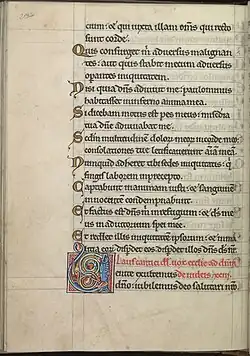 cium: et qui iuxta illam omnes qui recto
sunt corde.
Quis consurget m adversus malignan
tes: aut quis stabit mecum adversus
operantes iniquitatem.
Nisi quia dns adiuvit me: paulominus
habitasset in inferno anima mea.
Si dicebam motus est pes meus: mise dia
tua dne adiuvabat me.
Scdm multitudinem dolor meor in corde meo:
consolationes tue letificaverunt aīam meā.
Nunquid adheret tibi sedes iniquitatis: qui
fingis laborem in precepto.
Captabunt in animam iusti: et sanguinem
innocentem condempnabunt.
Et factus est dns m in refugium: et ds me
us in adiutorium spei mee.
Et reddet illis iniquitatem ipsorum: et in ma
licia eorum disperdet eos disperdet illos dns ds nr.
Laus cantici
enite exultemus
dno: iubilemus deo salutari nro